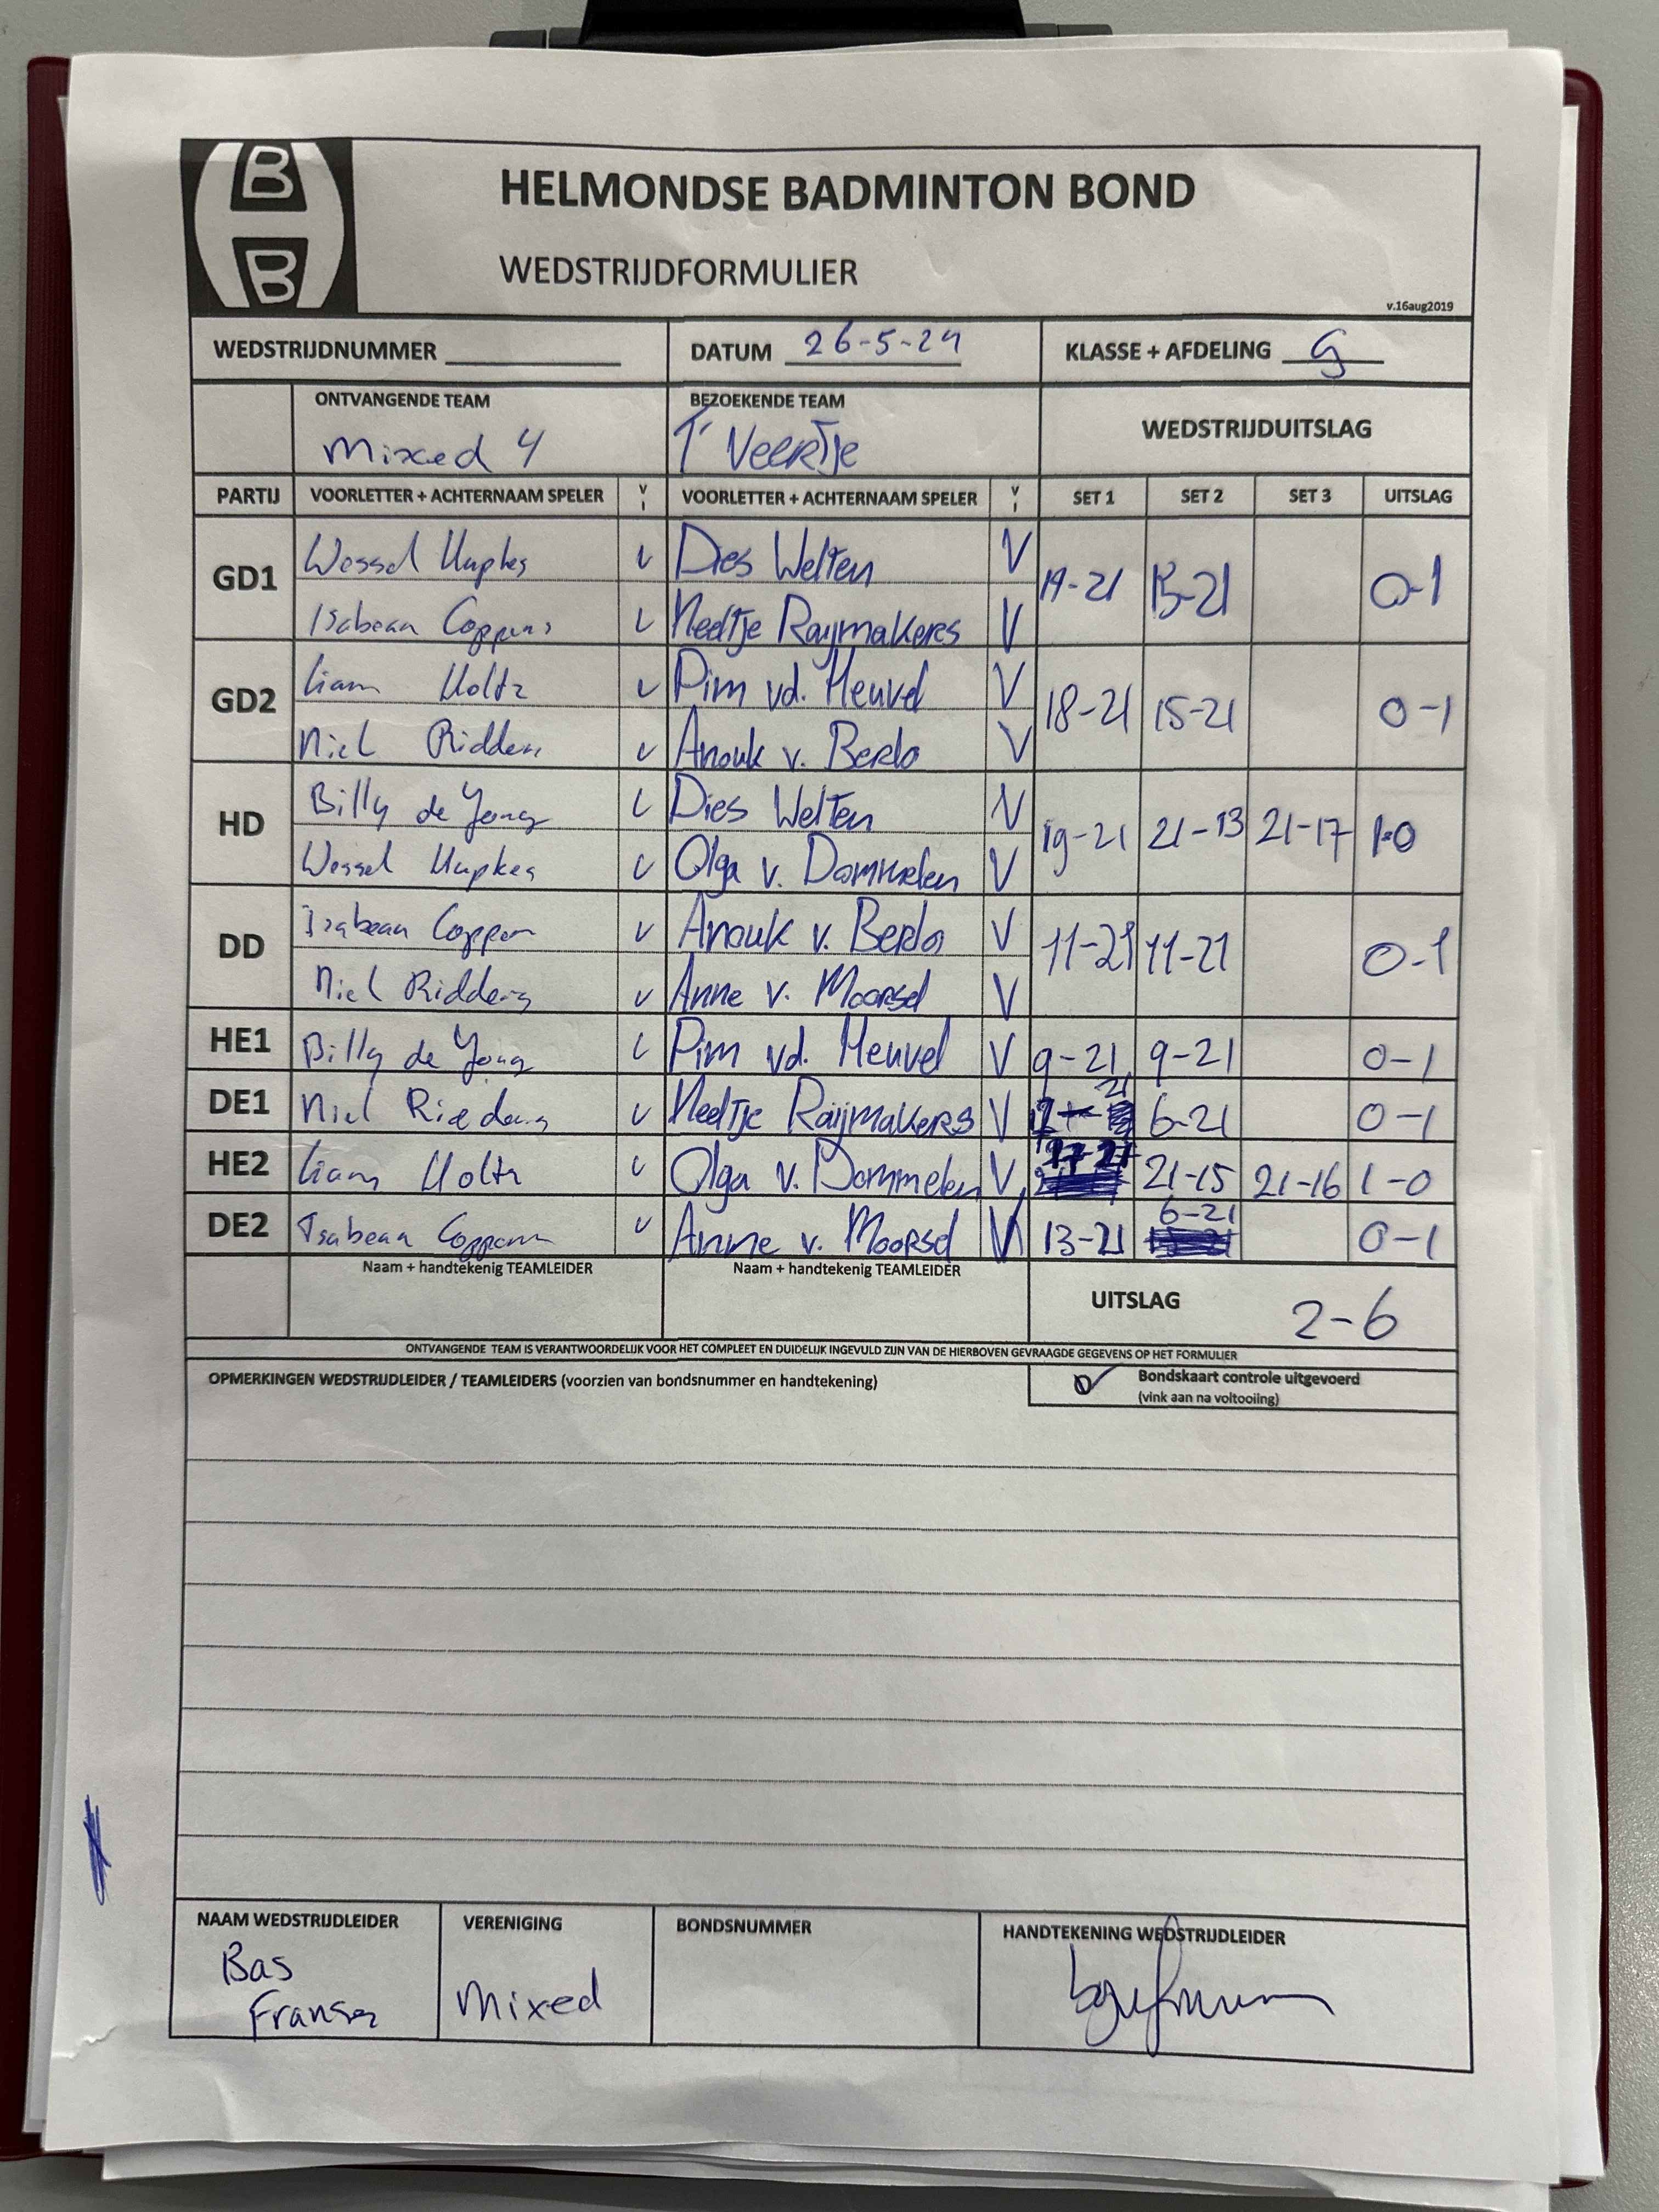 B
B
HELMONDSE BADMINTON BOND
WEDSTRIJDFORMULIER
v.16aug2019
WEDSTRIJDNUMMER DATUM 26-5-24 KLASSE + AFDELING G
ONTVANGENDE TEAM BEZOEKENDE TEAM WEDSTRIJDUITSLAG
Mixed 4 T' Veertje
PARTIJ VOORLETTER + ACHTERNAAM SPELER V I VOORLETTER + ACHTERNAAM SPELER V I SET 1 SET 2 SET 3 UITSLAG
GD1 Wessel Hupkes v Dies Welten V 19-21 15-21 0-1
Isabeau Coppens v Neeltje Raijmakers V
GD2 Liam Holtz v Pim vd. Heuvel V 18-21 15-21 0-1
Niel Ridders v Anouk v. Berlo V
HD Billy de Jong v Dies Welten V 19-21 21-13 21-17 1-0
Wessel Hupkes v Olga v. Dommelen V
DD Isabeau Coppen v Anouk v. Berlo V 11-21 11-21 0-1
Niel Ridders v Anne v. Moorsel V
HE1 Billy de Jong v Pim vd. Heuvel V 9-21 9-21 0-1
DE1 Niel v Neeltje Raijmakers V 21 6-21 0-1
HE2 Liam Holtz v Olga v. Dommelen V 17-21 21-15 21-16 1-0
DE2 Isabeau v Anne v. Moorsel V 13-21 6-21 0-1
Naam + handtekenig TEAMLEIDER Naam + handtekenig TEAMLEIDER
UITSLAG 2-6
ONTVANGENDE TEAM IS VERANTWOORDELIJK VOOR HET COMPLEET EN DUIDELIJK INGEVULD ZIJN VAN DE HIERBOVEN GEVRAAGDE GEGEVENS OP HET FORMULIER
OPMERKINGEN WEDSTRIJDLEIDER / TEAMLEIDERS (voorzien van bondsnummer en handtekening) Bondskaart controle uitgevoerd
(vink aan na voltooiing)
NAAM WEDSTRIJDLEIDER VERENIGING BONDSNUMMER HANDTEKENING WEDSTRIJDLEIDER
Bas
Fransen Mixed